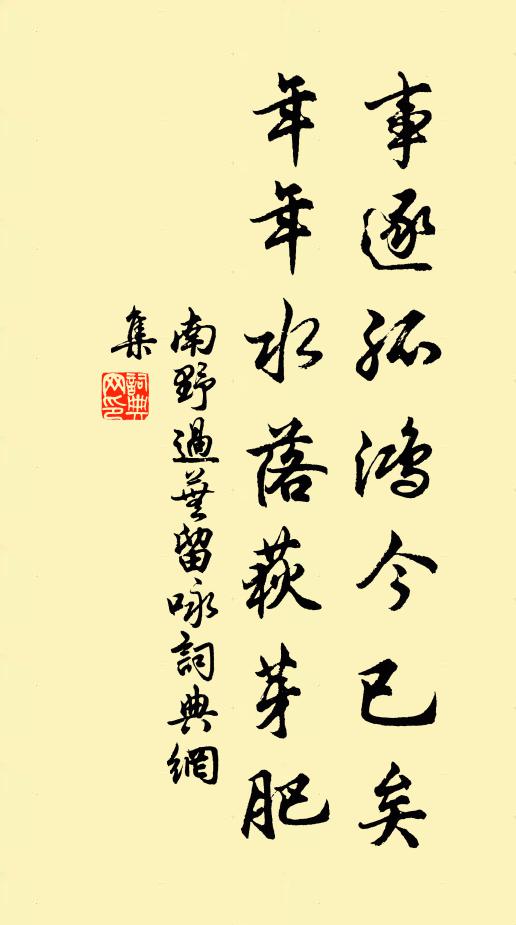 事逐孤鴻今已矣
年年水落荻芽肥
南野過蕪留咏詞典網
集
詞典網印